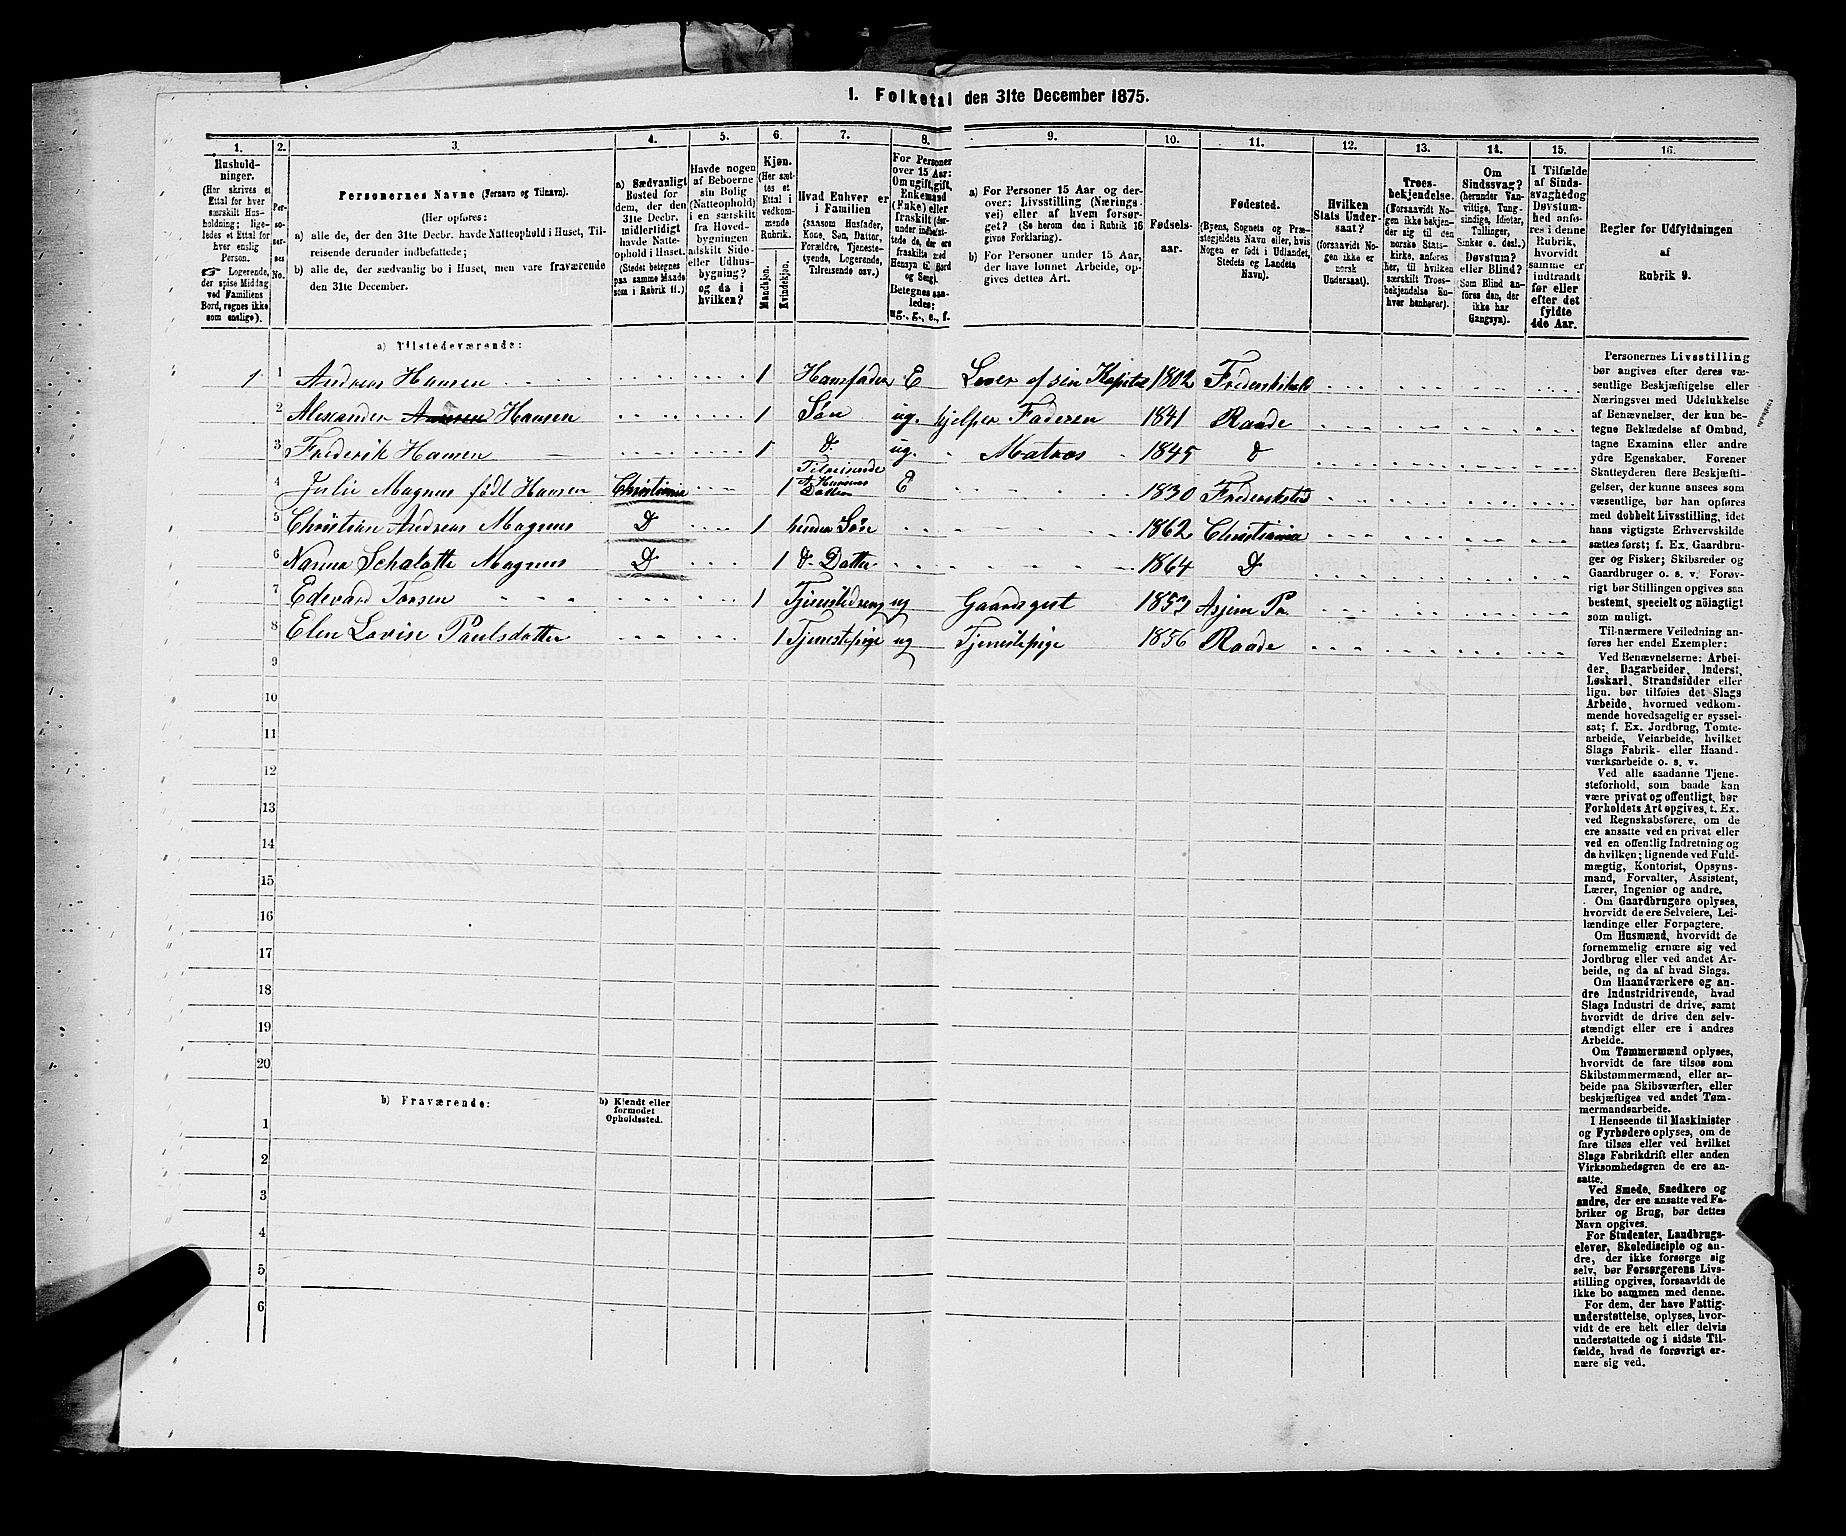 1. Folketal den 31te December 1875.
1. 2. 3. 4. 5. 6. 7. 8. 9. 10. 11. 12. 13. 14. 15. 16.
Hushold-
ninger.
(Her skrives et
Ettal for hver
særskilt Hus-
holdning; lige-
ledes et Ettal for
hver enslig
Person.
☞ Logerende,
der spise Middag
ved Familiens
Bord, regnes ikke
som enslige).
Per-
so-
ner-
nes
No.
Personernes Navne (Fornavn og Tilnavn).
(Her opføres:
a) alle de, der den 31te Decbr. havde Natteophold i Huset, Til-
reisende derunder indbefattede;
b) alle de, der sædvanlig bo i Huset, men vare fraværende
den 31te December.
a) Sædvanligt
Bosted for
dem, der den
31te Decbr.
midlertidigt
havde Natte-
ophold i Huset.
(Stedet betegnes
paa samme Maade
som i Rubrik 11.)
Havde nogen
af Beboerne
sin Bolig
(Natteophold)
i en særskilt
fra Hoved-
bygningen
adskilt Side-
eller Udhus-
bygning?
og da i
hvilken?
Kjøn.
(Her sæt-
tes et
Ettal i
vedkom-
mende
Rubrik.
Mandkjøn.
Kvindekjøn.
Hvad Enhver er
i Familien
(saasom Husfader,
Kone, Søn, Datter,
Forældre, Tjeneste-
tyende, Logerende,
Tilreisende osv.)
For Personer
over 15 Aar:
Om ugift, gift,
Enkemand
(Enke) eller
fraskilt (der-
under indbefat-
tede de, der ere
fraskilte med
Hensyn til Bord
og Seng).
Betegnes saa-
ledes:
ug., g., e., f.
a) For Personer 15 Aar og der-
over: Livsstilling (Nærings-
vei) eller af hvem forsør-
get? (Se herom den i Rubrik 16
givne Forklaring).
b) For Personer under 15 Aar,
der have lønnet Arbeide, op-
gives dettes Art.
Fødsels-
aar.
Fødested.
(Byens, Sognets og Præ-
stegjeldets Navn eller, hvis
Nogen er født i Udlandet,
Stedets og Landets
Navn).
Hvilken
Stats Under-
saat?
(forsaavidt No-
gen ikke er
norsk
Undersaat).
Troes-
bekjendelse.
(Forsaavidt No-
gen ikke bekjen-
der sig til den
norske Stats-
kirke, anføres
her, til hvilken
særskilt Troes-
bekjendelse En-
hver henhører).
Om
Sindssvag?
(herunder Van-
vittige, Tung-
sindige, Idioter,
Tullinger,
Sinker o. desl.)
Døvstum?
eller Blind?
(Som Blind an-
føres den, der
ikke har
Gangsyn).
I Tilfælde
af Sinds-
svaghed og
Døvstum-
hed anfø-
res i denne
Rubrik,
hvorvidt
samme er
indtraadt
før eller
efter det
fyldte
4de Aar.
Regler for Udfyldningen
af
Rubrik 9.
a) Tilstedeværende:
1 1 Andreas Hansen 1 Huusfader E Lever af sin Kapital 1802 Frederikshald
2 Alexander Hansen 1 Søn ug. hjelper Faderen 1841 Raade
3 Frederik Hansen 1 D. ug. Matros 1845 D
4 Julie Magnus født Hansen Christiania 1 Tilreisende A. Hansens Datter E 1830 Frederiksstad
5 Christian Andreas Magnus D 1 hendes Søn 1862 Christiania
6 Nanna Schalotte Magnus D 1 D. Datter 1864 D
7 Edevard Torsen 1 Tjenestedreng ug Gaardsgut Pr.
8 Elen Lovise Paulsdatter 1 Tjenestepige ug Tjenestepige 1856 Raade
9
10
11
12
13
14
15
16
17
18
19
20
b) Fraværende:
b) Kjendt eller
formodet
Opholdssted.
1
2
3
4
5
6
Personernes Livsstilling
bør angives efter deres væ-
sentlige Beskjæftigelse eller
Næringsvei med Udelukkelse
af Benævnelser, der kun be-
tegne Beklædelse af Ombud,
tagne Examina eller andre
ydre Egenskaber. Forener
Skatteyderen flere Beskjæfti-
gelser, der kunne ansees som
væsentlige, bør han opføres
med dobbelt Livsstilling, idet
hans vigtigste Erhvervskilde
sættes først; f. Ex. Gaardbru-
ger og Fisker; Skibsreder og
Gaardbruger o. s. v. Forøv-
rigt bør Stillingen opgives saa
bestemt, specielt og nøiagtigt
som muligt.
Til nærmere Veiledning an-
føres her endel Exempler:
Ved Benævnelserne: Arbei-
der, Dagarbeider, Inderst,
Løskarl, Strandsidder eller
lign. bør tilføies det Slags
Arbeide, hvormed vedkom-
mende hovedsagelig er syssel-
sat; f. Ex. Jordbrug, Tømte-
arbeide, Veiarbeide, hvilket
Slags Fabrik- eller Haand-
værksarbeide o. s. v.
Ved alle saadanne Tjene-
steforhold, som baade kan
være privat og offentligt, bør
Forholdets Art opgives, t. Ex.
ved Regnskabsførere, om de
ere ansatte ved en privat eller
ved en offentlig Indretning og
da hvilken; lignende ved Fuld-
mægtig, Kontorist, Opsyns-
mand, Forvalter, Assistent,
Lærer, Ingeniør og andre.
Om Gaardbrugere oplyses,
hvorvidt de ere Selveiere, Lei-
lændinge eller Forpagtere.
Om Husmænd, hvorvidt de
fornemmelig ernære sig ved
Jordbrug eller ved andet Ar-
beide, og da af hvad Slags.
Om Haandværkere og an-
dre Industridrivende, hvad
Slags Industri de drive, samt
hvorvidt de drive den selv-
stændigt eller ere i andres
Arbeide.
Om Tømmermænd oplyses,
hvorvidt de fare tilsøs som
Skibstømmermænd, eller ar-
beide paa Skibsværfter, eller
beskjæftiges ved andet Tøm-
mermandsarbeide.
I Henseende til Maskinister
og Fyrbødere oplyses, om de
fare tilsøs eller ved hvilket
Slags Fabrikdrift eller anden
Virksomhedsgren de ere an-
satte.
Ved Smede, Snedkere og
andre, der ere ansatte ved Fa-
briker og Brug, bør dettes
Navn opgives.
For Studenter, Landbrugs-
elever, Skoledisciple og an-
dre, der ikke forsørge sig
selv, bør Forsørgerens Livs-
stilling opgives, forsaavidt de
ikke bo sammen med denne.
For dem, der have Fattig-
understøttelse, oplyses, hvor-
vidt de ere helt eller delvis
understøttede og i sidste Til-
fælde, hvad de forøvrigt er-
nære sig ved.